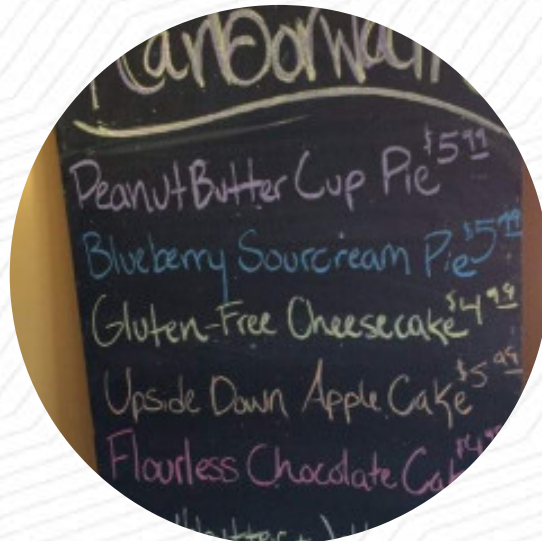 Peanut Butter Cup Pie $5.99
Blueberry Sourcream Pie $5.99
Gluten-Free Cheesecake $4.99
Upside Down Apple Cake $5.99
Flourless Chocolate